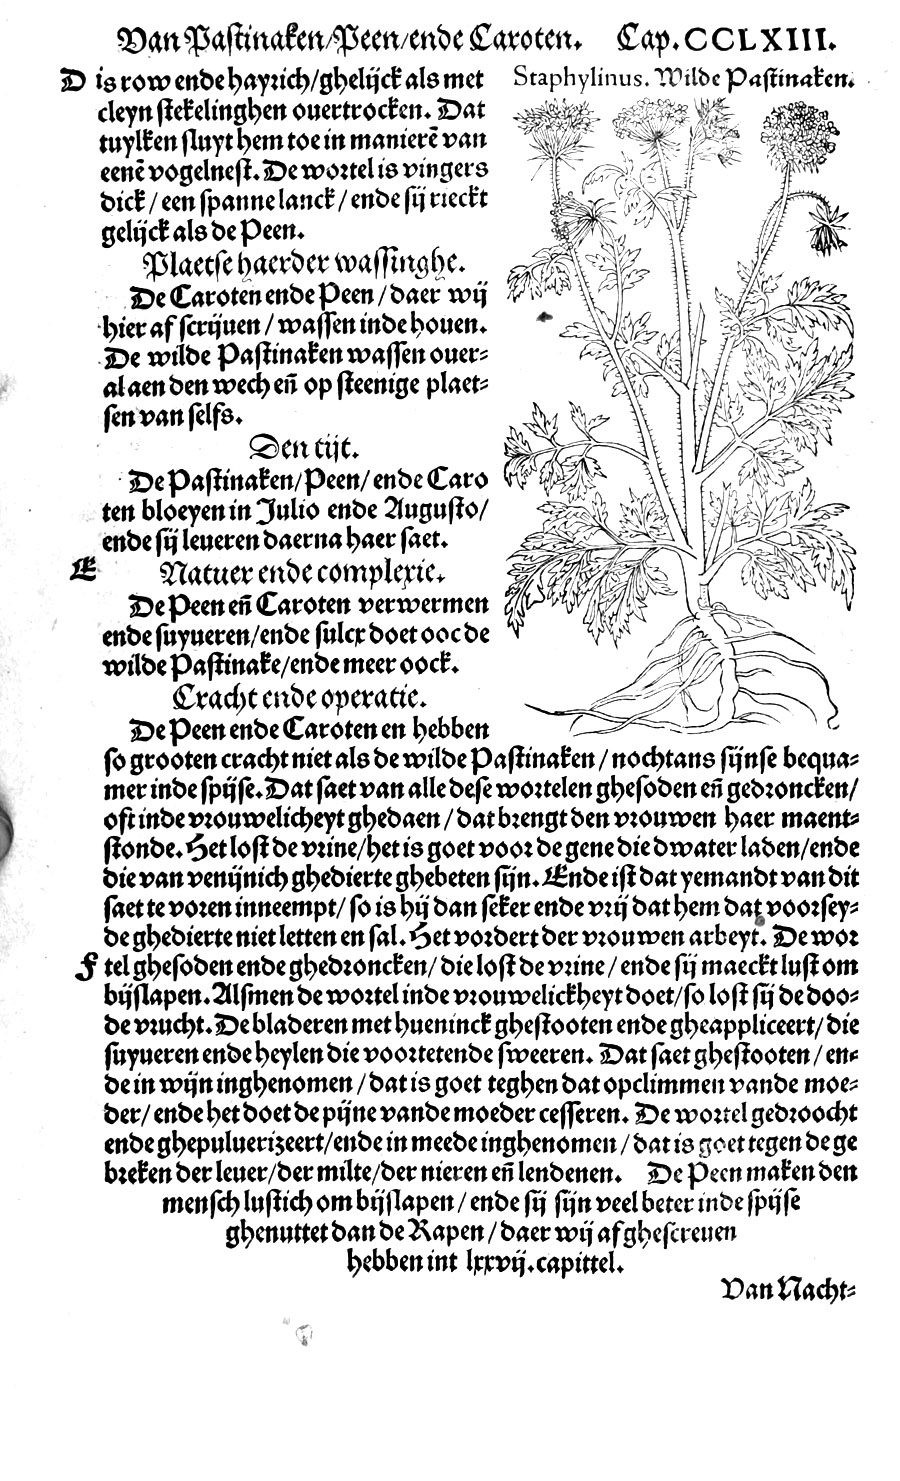 Van Pastinaken/Peen/ende Caroten. Cap. CCLXIII.
Staphylinus. Wilde Pastinaken.
D is row ende hayrich/ghelijck als met
cleyn stekelinghen ouertrocken. Dat
tuylken sluyt hem toe in manierē van
eenē vogelnest. De wortel is vingers
dick/een spanne lanck/ende sij rieckt
gelijck als de Peen.
Plaetse haerder wassinghe.
De Caroten ende Peen/daer wij
hier af scrijuen/wassen inde houen.
De wilde Pastinaken wassen ouer⸗
al aen den wech eñ op steenige plaet⸗
sen van selfs.
Den tijt.
De Pastinaken/Peen/ende Caro
ten bloeyen in Julio ende Augusto/
ende sij leueren daerna haer saet.
E Natuer ende complexie.
De Peen eñ Caroten verwermen
ende suyueren/ende sulcx doet ooc de
wilde Pastinake/ende meer oock.
Cracht ende operatie.
De Peen ende Caroten en hebben
so grooten cracht niet als de wilde Pastinaken/nochtans sijnse bequa⸗
mer inde spijse. Dat saet van alle dese wortelen ghesoden eñ gedroncken/
oft inde vrouwelicheyt ghedaen/dat brengt den vrouwen haer maent⸗
stonde. Het lost de vrine/het is goet voor de gene die dwater laden/ende
die van venijnich ghedierte ghebeten sijn. Ende ist dat yemandt van dit
saet te voren inneempt/so is hij dan seker ende vrij dat hem dat voorsey⸗
de ghedierte niet letten en sal. Het vordert der vrouwen arbeyt. De wor
F tel ghesoden ende ghedroncken/die lost de vrine/ende sij maeckt lust om
bijslapen. Alsmen de wortel inde vrouwelickheyt doet/so lost sij de doo⸗
de vrucht. De bladeren met hueninck ghestooten ende gheappliceert/die
suyueren ende heylen die voortetende sweeren. Dat saet ghestooten/en⸗
de in wijn inghenomen/dat is goet teghen dat opclimmen vande moe⸗
der/ende het doet de pijne vande moeder cesseren. De wortel gedroocht
ende ghepuluerizeert/ende in meede inghenomen/dat is goet tegen de ge
breken der leuer/der milte/der nieren eñ lendenen. De Peen maken den
mensch lustich om bijslapen/ende sij sijn veel beter inde spijse
ghenuttet dan de Rapen/daer wij af ghescreuen
hebben int lxxvij. capittel.
Van Nacht⸗